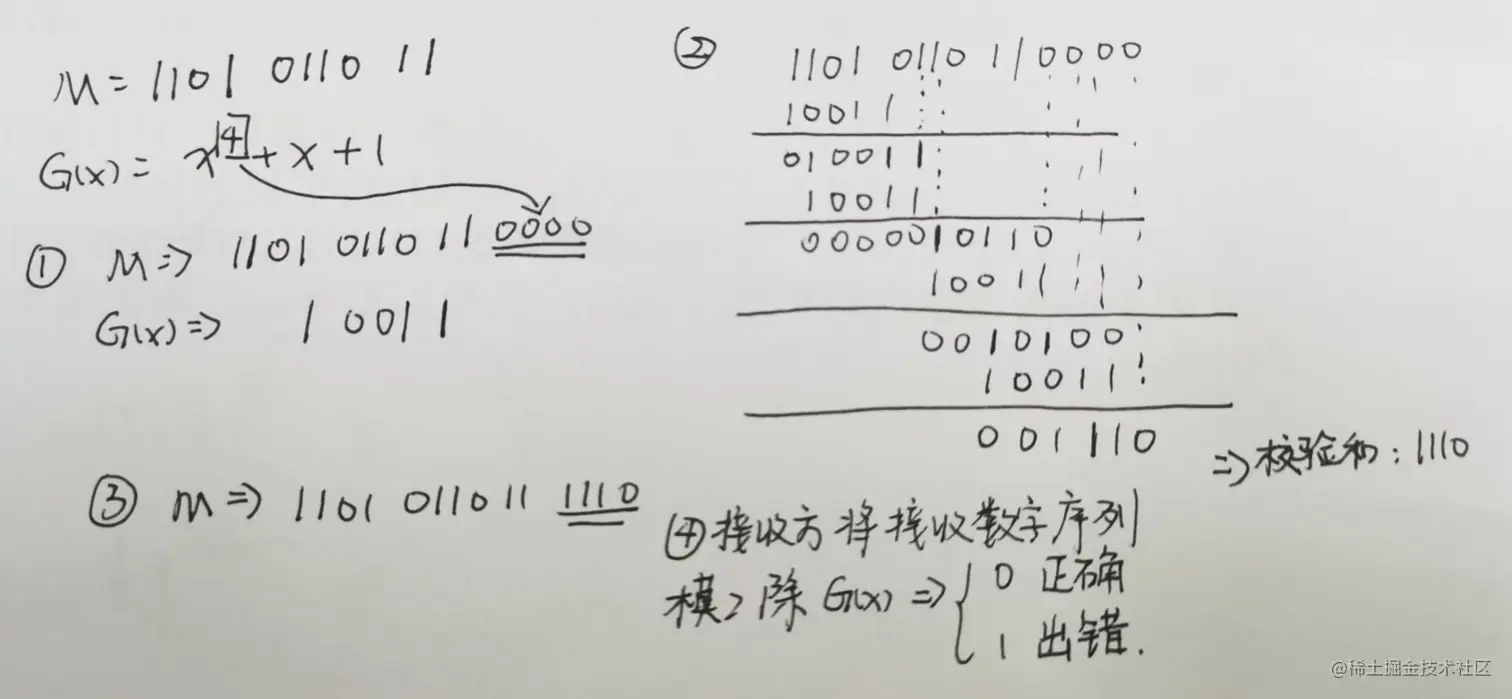 M = 1101 0110 11
G(x) = x^4 + x + 1
① M => 1101 0110 11 0000
G(x) => 10011
② 1101 0110 110000
10011
010011
10011
00000010110
10011
0010100
10011
001110
=> 校验和：1110
③ M => 1101 0110 11 1110
④接收方将接收数字序列
模2除 G(x) => { 0 正确
1 出错.
@稀土掘金技术社区